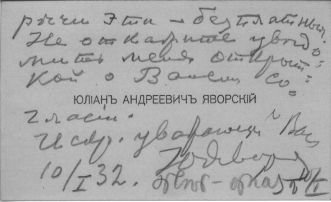 рѣчи эти – безплатныя.
Не откажите увѣдо-
мить меня открыт-
кой о Вашем со-
ЮЛІАНЪ АНДРЕЕВИЧЪ ЯВОРСКІЙ
гласіи.
Искр. уважающій Вас
10/I 32.